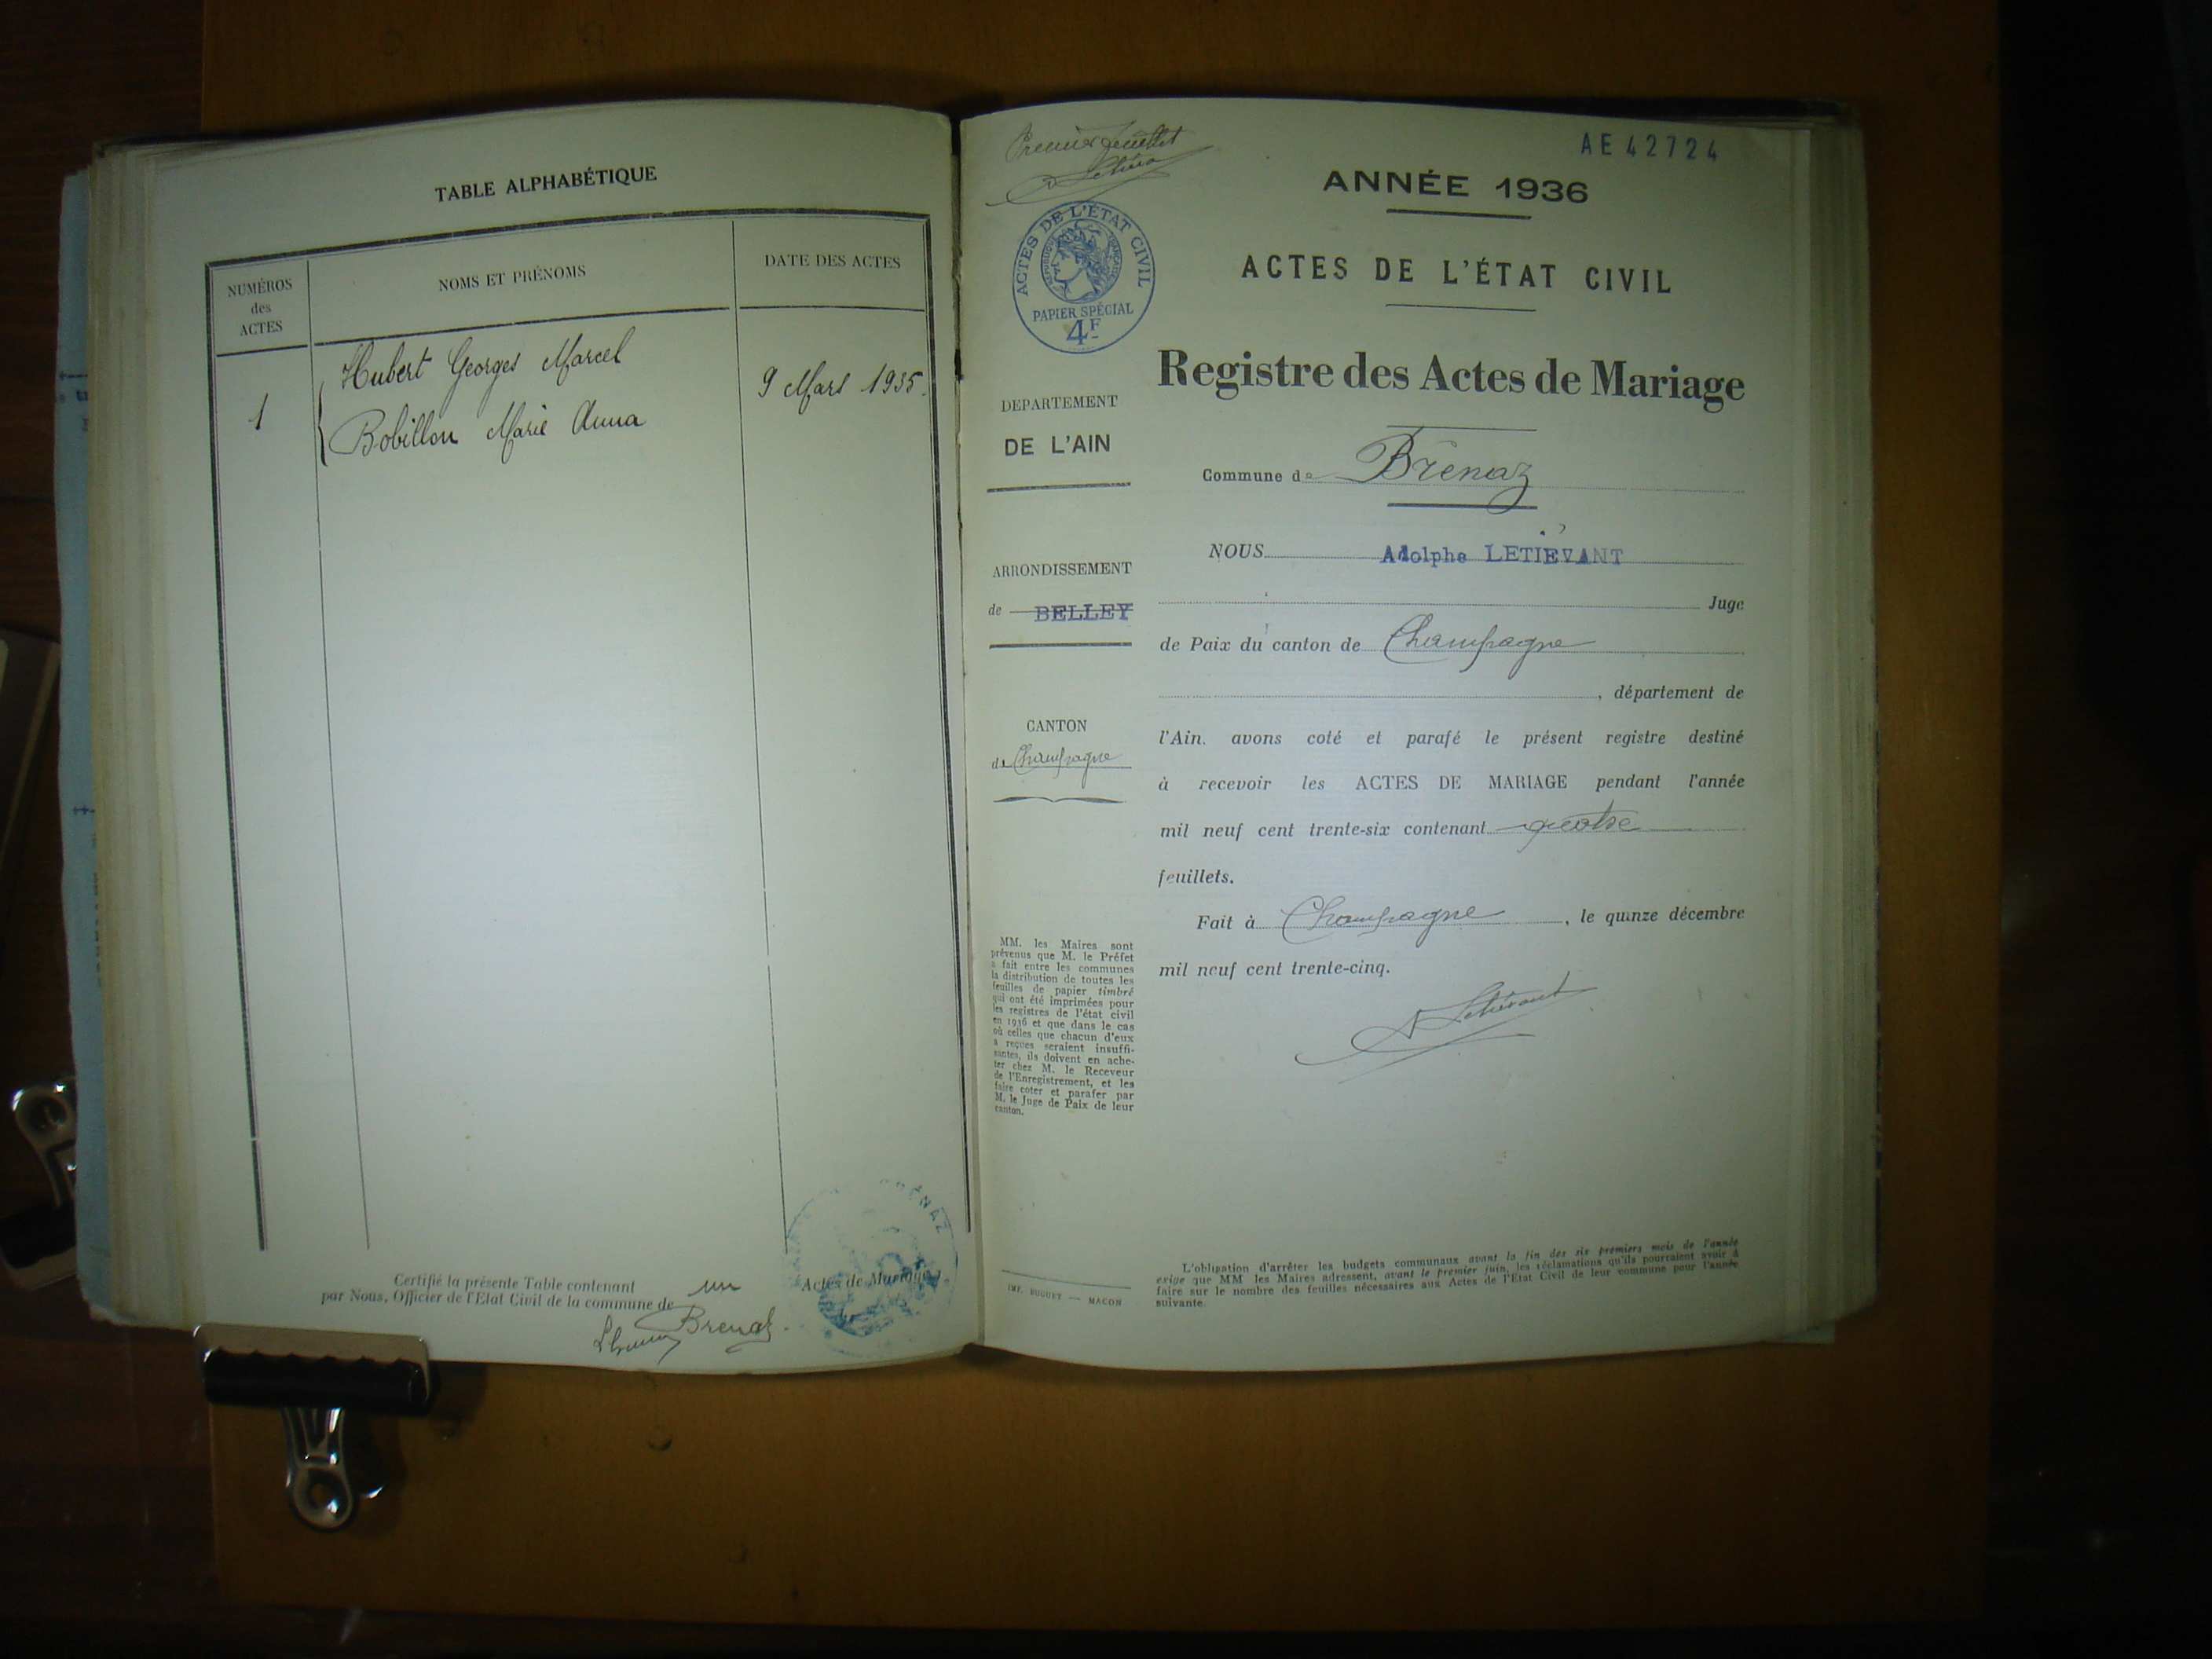 TABLE ALPHABÉTIQUE
NUMÉROS
des
ACTES
NOMS ET PRÉNOMS
DATE DES ACTES
1
Hubert Georges Marcel
Bobillon Marie Anna
9 Mars 1935.
Certifié la présente Table contenant un Actes de Mariage,
par Nous, Officier de l'Etat Civil de la commune de Brenaz.
BRÉNAZ
Premier feuillet
AE 42724
ANNÉE 1936
ACTES DE L'ÉTAT CIVIL
PAPIER SPÉCIAL
4F
ACTES DE L'ÉTAT CIVIL
Registre des Actes de Mariage
DEPARTEMENT
DE L'AIN
Commune de Brénaz
ARRONDISSEMENT
de BELLEY
NOUS Adolphe LETIEVANT
Juge
de Paix du canton de Champagne
, département de
CANTON
de Champagne
l'Ain. avons coté et parafé le présent registre destiné
à recevoir les ACTES DE MARIAGE pendant l'année
mil neuf cent trente-six contenant quatre
feuillets.
Fait à Champagne, le quinze décembre
mil neuf cent trente-cinq.
A Letiévant
MM. les Maires sont
prévenus que M. le Préfet
a fait entre les communes
la distribution de toutes les
feuilles de papier timbré
qui ont été imprimées pour
les registres de l'état civil
en 1936 et que dans le cas
où celles que chacun d'eux
a reçues seraient insuffi-
santes, ils doivent en ache-
ter chez M. le Receveur
de l'Enregistrement, et les
faire coter et parafer par
M. le Juge de Paix de leur
canton.
IMP. BUGUET — MACON
L'obligation d'arrêter les budgets communaux avant la fin des six premiers mois de l'année
exige que MM les Maires adressent, avant le premier juin, les réclamations qu'ils pourraient avoir à
faire sur le nombre des feuilles nécessaires aux Actes de l'Etat Civil de leur commune pour l'année
suivante.